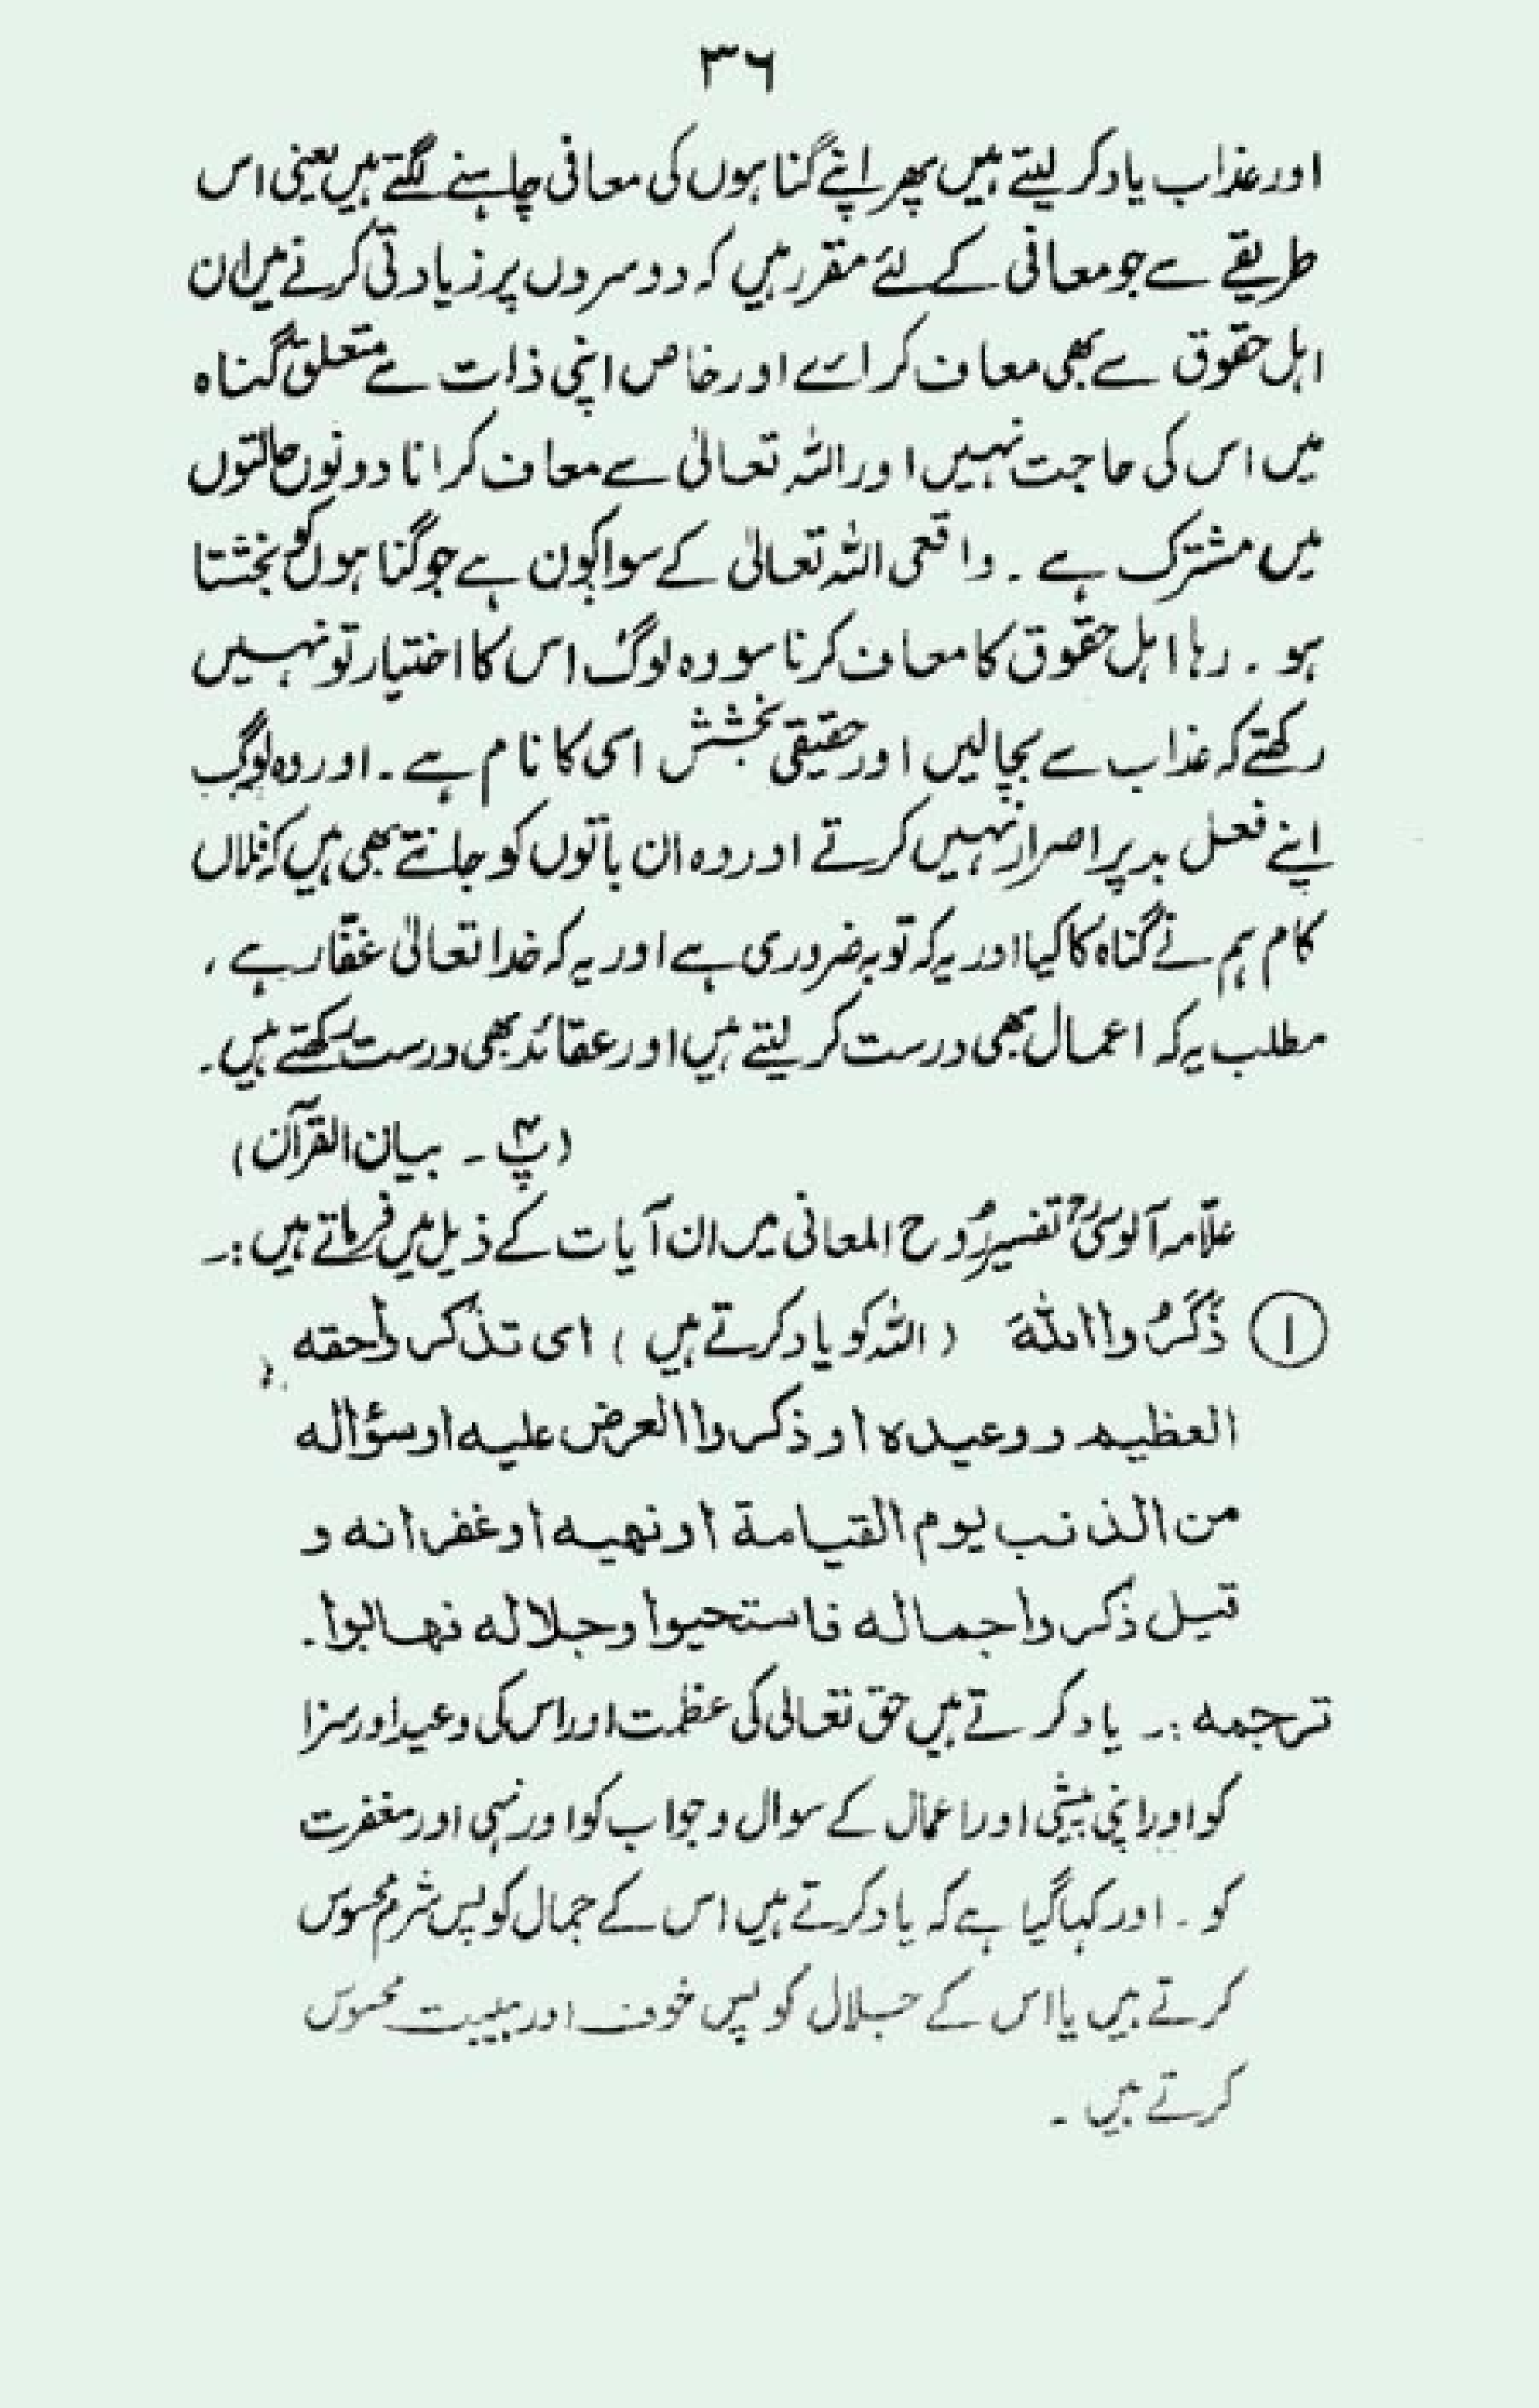 ۳۶
اور عذاب یاد کر لیتے ہیں پھر اپنے گناہوں کی معافی چاہنے لگتے ہیں یعنی اس
طریقے سے جو معافی کے لئے مقرر ہیں کہ دوسروں پر زیادتی کرنے میں ان
اہل حقوق سے بھی معاف کراے اور خاص اپنی ذات سے متعلق گناہ
میں اس کی حاجت نہیں اور اللہ تعالیٰ سے معاف کرانا دونوں حالتوں
میں مشترک ہے ۔ واقعی اللہ تعالیٰ کے سوا کون ہے جو گناہوں کو بخشتا
ہو ۔ رہا اہل حقوق کا معاف کرنا سو وہ لوگ اس کا اختیار تو نہیں
رکھتے کہ عذاب سے بچالیں اور حقیقی بخشش اسی کا نام ہے ۔ اور وہ لوگ
اپنے فعل بد پر اصرار نہیں کرتے اور وہ ان باتوں کو جانتے بھی ہیں کہ فلاں
کام ہم نے گناہ کا کیا اور یہ کہ توبہ ضروری ہے اور یہ کہ خدا تعالیٰ غفّار ہے ،
مطلب یہ کہ اعمال بھی درست کر لیتے ہیں اور عقائد بھی درست رکھتے ہیں ۔
(پ۴ ۔ بیان القرآن)
علّامہ آلوسیؒ تفسیر رُوح المعانی میں ان آیات کے ذیل میں فرماتے ہیں :۔
۱ ذَكَرُوا اللهَ (اللہ کو یاد کرتے ہیں) ای تذکروا حقه
العظیم و وعیدہ او ذکروا العرض علیه او سؤاله
من الذنب یوم القیامة او نهیه او غفرانه و
قیل ذکروا جماله فاستحیوا وجلاله فهابوا ۔
ترجمہ :۔ یاد کرتے ہیں حق تعالی کی عظمت اور اس کی وعید اور سزا
کو اور اپنی پیشی اور اعمال کے سوال و جواب کو اور نہی اور مغفرت
کو ۔ اور کہا گیا ہے کہ یاد کرتے ہیں اس کے جمال کو پس شرم محسوس
کرتے ہیں یا اس کے جلال کو پس خوف اور ہیبت محسوس
کرتے ہیں ۔